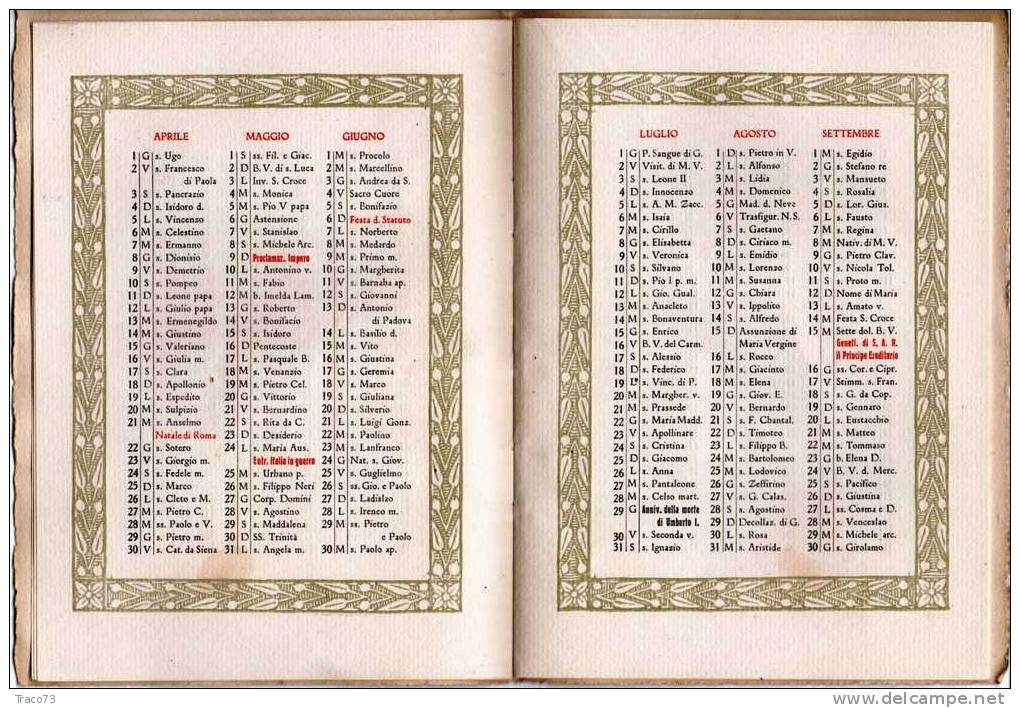 APRILE
1 G s. Ugo
2 V s. Francesco
di Paola
3 S s. Pancrazio
4 D s. Isidoro d.
5 L s. Vincenzo
6 M s. Celestino
7 M s. Ermanno
8 G s. Dionisio
9 V s. Demetrio
10 S s. Pompeo
11 D s. Leone papa
12 L s. Giulio papa
13 M s. Ermenegildo
14 M s. Giustino
15 G s. Valeriano
16 V s. Giulia m.
17 S s. Clara
18 D s. Apollonio
19 L s. Espedito
20 M s. Sulpizio
21 M s. Anselmo
Natale di Roma
22 G s. Sotero
23 V s. Giorgio m.
24 S s. Fedele m.
25 D s. Marco
26 L s. Cleto e M.
27 M s. Pietro C.
28 M ss. Paolo e V.
29 G s. Pietro m.
30 V s. Cat. da Siena
MAGGIO
1 S ss. Fil. e Giac.
2 D B. V. di s. Luca
3 L Inv. S. Croce
4 M s. Monica
5 M s. Pio V papa
6 G Astensione
7 V s. Stanislao
8 S s. Michele Arc.
9 D Proclamaz. Impero
10 L s. Antonino v.
11 M s. Fabio
12 M b. Imelda Lam.
13 G s. Roberto
14 V s. Bonifacio
15 S s. Isidoro
16 D Pentecoste
17 L s. Pasquale B.
18 M s. Venanzio
19 M s. Pietro Cel.
20 G s. Vittorio
21 V s. Bernardino
22 S s. Rita da C.
23 D s. Desiderio
24 L s. Maria Aus.
Entr. Italia in guerra
25 M s. Urbano p.
26 M s. Filippo Neri
27 G Corp. Domini
28 V s. Agostino
29 S s. Maddalena
30 D SS. Trinità
31 L s. Angela m.
GIUGNO
1 M s. Procolo
2 M s. Marcellino
3 G s. Andrea da S.
4 V Sacro Cuore
5 S s. Bonifazio
6 D Festa d. Statuto
7 L s. Norberto
8 M s. Medardo
9 M s. Primo m.
10 G s. Margherita
11 V s. Barnaba ap.
12 S s. Giovanni
13 D s. Antonio
di Padova
14 L s. Basilio d.
15 M s. Vito
16 M s. Giustina
17 G s. Geremia
18 V s. Marco
19 S s. Giuliana
20 D s. Silverio
21 L s. Luigi Gonz.
22 M s. Paolino
23 M s. Lanfranco
24 G Nat. s. Giov.
25 V s. Guglielmo
26 S ss. Gio. e Paolo
27 D s. Ladislao
28 L s. Ireneo m.
29 M ss. Pietro
e Paolo
30 M s. Paolo ap.
LUGLIO
1 G P. Sangue di G.
2 V Visit. di M. V.
3 S s. Leone II
4 D s. Innocenzo
5 L s. A. M. Zacc.
6 M s. Isaia
7 M s. Cirillo
8 G s. Elisabetta
9 V s. Veronica
10 S s. Silvano
11 D s. Pio I p. m.
12 L s. Gio. Gual.
13 M s. Anacleto
14 M s. Bonaventura
15 G s. Enrico
16 V B. V. del Carm.
17 S s. Alessio
18 D s. Federico
19 L s. Vinc. di P.
20 M s. Margher. v.
21 M s. Prassede
22 G s. Maria Madd.
23 V s. Apollinare
24 S s. Cristina
25 D s. Giacomo
26 L s. Anna
27 M s. Pantaleone
28 M s. Celso mart.
29 G Anniv. della morte
di Umberto I.
30 V s. Seconda v.
31 S s. Ignazio
AGOSTO
1 D s. Pietro in V.
2 L s. Alfonso
3 M s. Lidia
4 M s. Domenico
5 G Mad. d. Neve
6 V Trasfigur. N. S.
7 S s. Gaetano
8 D s. Ciriaco m.
9 L s. Emidio
10 M s. Lorenzo
11 M s. Susanna
12 G s. Chiara
13 V s. Ippolito
14 S s. Alfredo
15 D Assunzione di
Maria Vergine
16 L s. Rocco
17 M s. Giacinto
18 M s. Elena
19 G s. Giov. E.
20 V s. Bernardo
21 S s. F. Chantal.
22 D s. Timoteo
23 L s. Filippo B.
24 M s. Bartolomeo
25 M s. Lodovico
26 G s. Zeffirino
27 V s. G. Calas.
28 S s. Agostino
29 D Decollaz. di G.
30 L s. Rosa
31 M s. Aristide
SETTEMBRE
1 M s. Egidio
2 G s. Stefano re
3 V s. Mansueto
4 S s. Rosalia
5 D s. Lor. Gius.
6 L s. Fausto
7 M s. Regina
8 M Nativ. di M. V.
9 G s. Pietro Clav.
10 V s. Nicola Tol.
11 S s. Proto m.
12 D Nome di Maria
13 L s. Amato v.
14 M Festa S. Croce
15 M Sette dol. B. V.
Genetl. di S. A. R.
il Principe Ereditario
16 G ss. Cor. e Cipr.
17 V Stimm. s. Fran.
18 S s. G. da Cop.
19 D s. Gennaro
20 L s. Eustacchio
21 M s. Matteo
22 M s. Tommaso
23 G b. Elena D.
24 V B. V. d. Merc.
25 S s. Pacifico
26 D s. Giustina
27 L ss. Cosma e D.
28 M s. Venceslao
29 M s. Michele arc.
30 G s. Girolamo
Traco73
WWW.DELCAMPE.NET